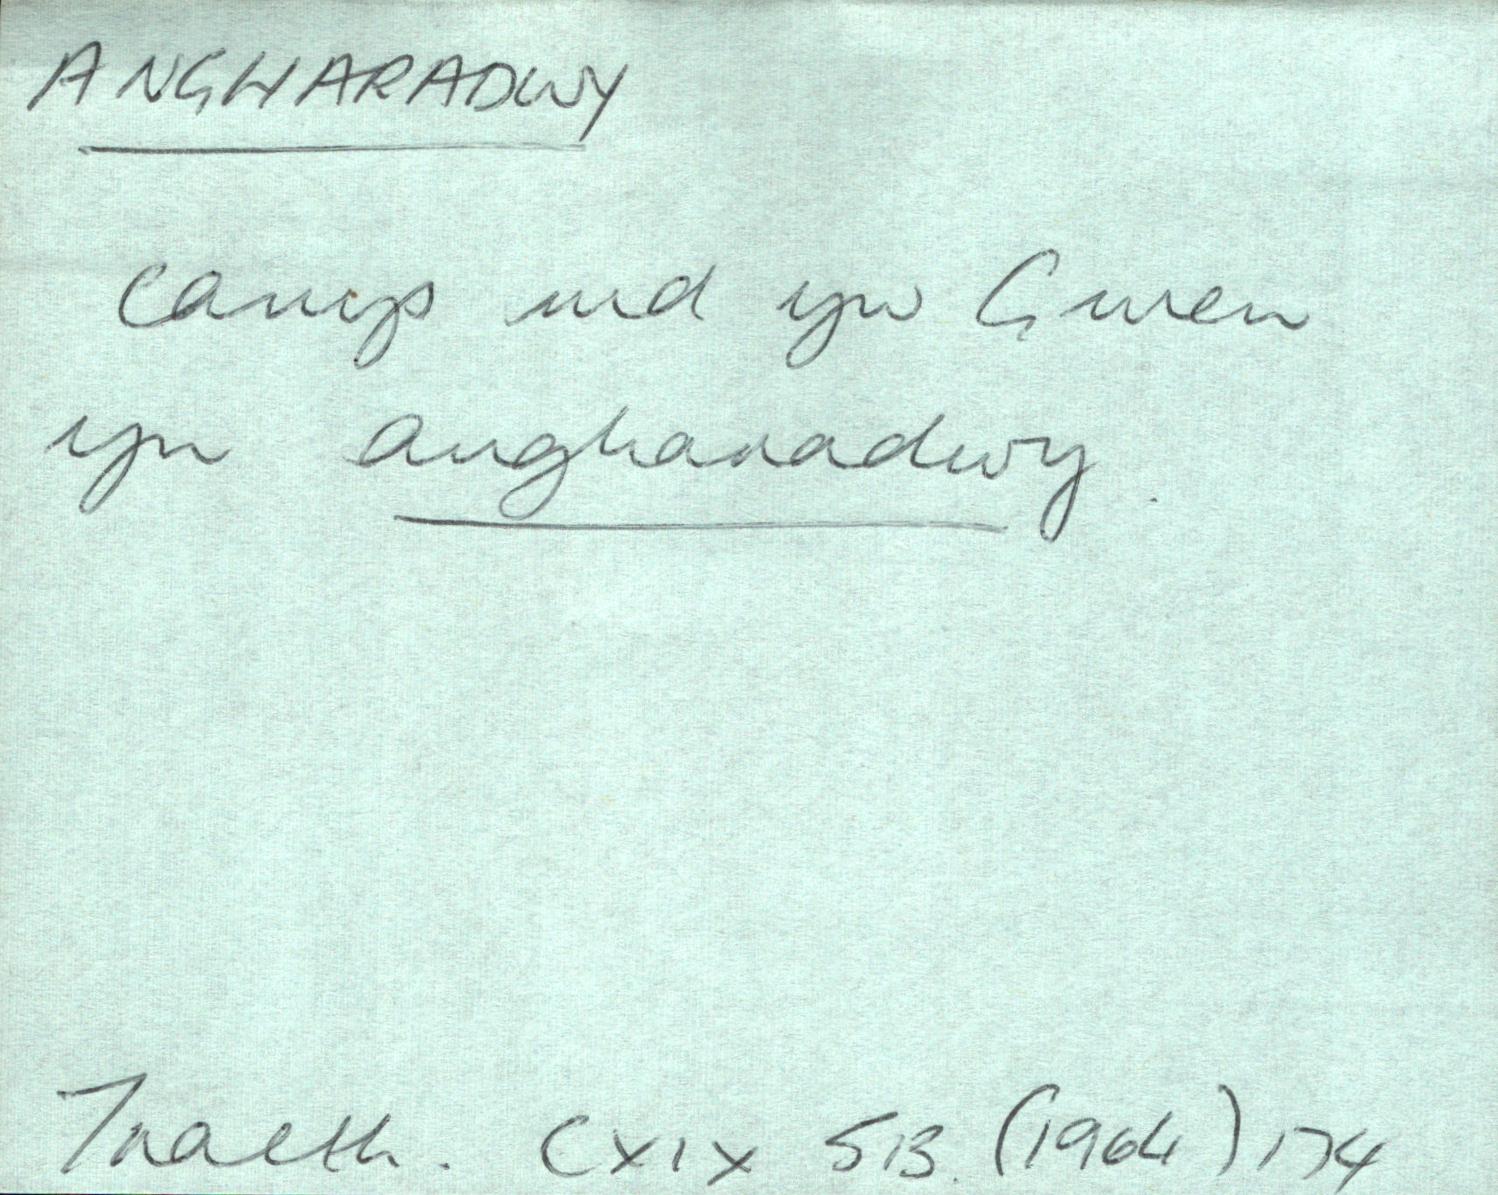 ANGHARADWY
camp md yw Gwen
yn angharadwy.
Traeth. CXIX 513. (1964) 174